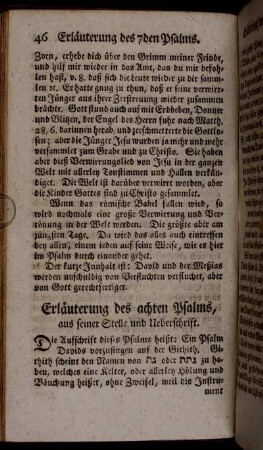 46 Erläuterung des 7den Psalms.
Zorn, erhebe dich über den Grimm meiner Feinde,
und hilf mir wieder in das Amt, das du mir befoh-
len hast, v. 8. daß sich die Leute wieder zu dir samm-
len ꝛc. Er hatte gnug zu thun, daß er seine verwirr-
ten Jünger aus ihrer Zerstreuung wieder zusammen
brächte. Gott stund auch auf mit Erdbeben, Donner
und Blitzen, der Engel des Herrn fuhr nach Matth.
28, 6. darinnen herab, und zerschmetterte die Gottlo-
sen; aber die Jünger Jesu wurden ja mehr und mehr
versammlet zum Grabe und zu Christo. Sie haben
aber dieß Verwirrungslied von Jesu in der ganzen
Welt mit allerley Tonstimmen und Hallen verkün-
diget. Die Welt ist darüber verwirret worden, aber
die Kinder Gottes sind zu Christo gesammlet.
Wenn das römische Babel fallen wird, so
wird nochmals eine große Verwirrung und Ver-
irrung in der Welt werden. Die größte aber am
jüngsten Tage. Da wird das alles auch eintreffen
bey allen, einem ieden auf seine Weise, wie es hier
im Psalm durch einander gehet.
Der kurze Innhalt ist: David und der Meßias
werden unschuldig von Verfluchten verfluchet, aber
von Gott gerechtfertiget.
Erläuterung des achten Psalms,
aus seiner Stelle und Ueberschrift.
Die Aufschrift dieses Psalms heißt: Ein Psalm
Davids vorzusingen auf der Githith. Gi-
thith scheint den Namen von גת oder גתת zu ha-
ben, welches eine Kelter, oder allerley Hölung und
Bäuchung heißet, ohne Zweifel, weil das Instru-
ment